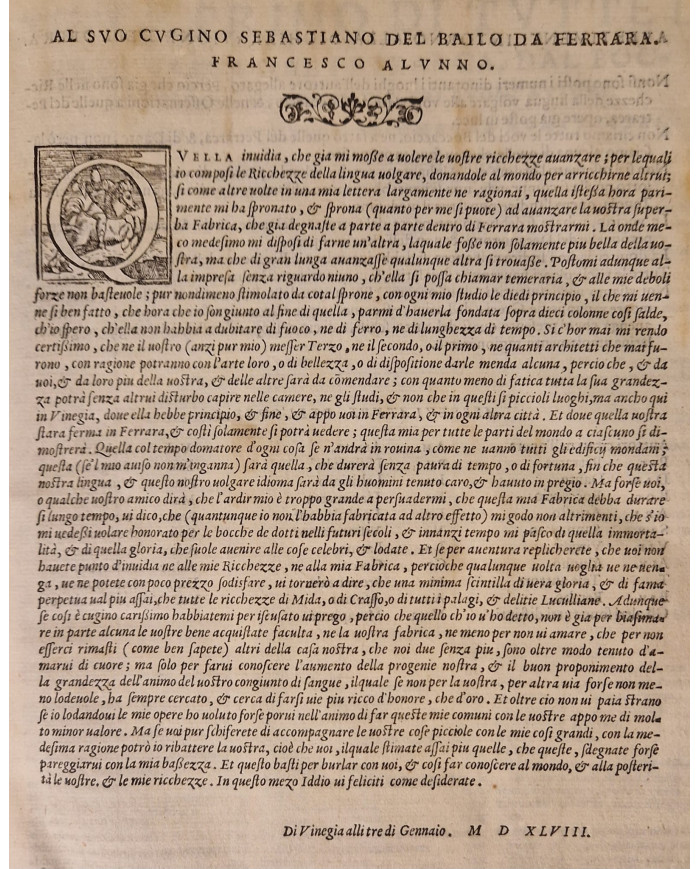 AL SVO CVGINO SEBASTIANO DEL BAILO DA FERRARA.
FRANCESCO ALVNNO.
QVELLA inuidia, che gia mi moſſe a uolere le uoſtre ricchezze auanzare; per lequali
io compoſi le Ricchezze della lingua uolgare, donandole al mondo per arricchirne altrui;
ſi come altre uolte in una mia lettera largamente ne ragionai, quella iſteſſa hora pari-
mente mi ha ſpronato, & ſprona (quanto per me ſi puote) ad auanzare la uoſtra ſuper-
ba Fabrica, che gia degnaſte a parte a parte dentro di Ferrara moſtrarmi. Là onde me-
co medeſimo mi diſpoſi di farne un'altra, laquale foſſe non ſolamente piu bella della uo-
ſtra, ma che di gran lunga auanzaſſe qualunque altra ſi trouaſſe. Poſtomi adunque al-
la impreſa ſenza riguardo niuno, ch'ella ſi poſſa chiamar temeraria, & alle mie deboli
forze non baſteuole; pur nondimeno ſtimolato da cotal ſprone, con ogni mio ſtudio le diedi principio, il che mi uen-
ne ſi ben fatto, che hora che io ſon giunto al fine di quella, parmi d'hauerla fondata ſopra dieci colonne coſi ſalde,
ch'io ſpero, ch'ella non habbia a dubitare di fuoco, ne di ferro, ne di lunghezza di tempo. Si c'hor mai mi rendo
certiſſimo, che ne il uoſtro (anzi pur mio) meſſer Terzo, ne il ſecondo, o il primo, ne quanti architetti che mai fu-
rono, con ragione potranno con l'arte loro, o di bellezza, o di diſpoſitione darle menda alcuna, percio che, & da
uoi, & da loro piu della uoſtra, & delle altre ſarà da comendare; con quanto meno di fatica tutta la ſua grandez-
za potrà ſenza altrui diſturbo capire nelle camere, ne gli ſtudi, & non che in queſti ſi piccioli luoghi, ma ancho qui
in Vinegia, doue ella hebbe principio, & fine, & appo uoi in Ferrara, & in ogni altra città. Et doue quella uoſtra
ſtara ferma in Ferrara, & coſti ſolamente ſi potrà uedere; queſta mia per tutte le parti del mondo a ciaſcuno ſi di-
moſtrerà. Quella col tempo domatore d'ogni coſa ſe n'andrà in rouina, come ne uanno tutti gli edificij mondani;
queſta (ſe'l mio auiſo non m'inganna) ſarà quella, che durerà ſenza paura di tempo, o di fortuna, fin che queſta
noſtra lingua, & queſto noſtro uolgare idioma ſarà da gli huomini tenuto caro, & hauuto in pregio. Ma forſe uoi,
o qualche uoſtro amico dirà, che l'ardir mio è troppo grande a perſuadermi, che queſta mia Fabrica debba durare
ſi lungo tempo, ui dico, che (quantunque io non l'habbia fabricata ad altro effetto) mi godo non altrimenti, che s'io
mi uedeſſi uolare honorato per le bocche de dotti nelli futuri ſecoli, & innanzi tempo mi paſco di quella immorta-
lità, & di quella gloria, che ſuole auenire alle coſe celebri, & lodate. Et ſe per auentura replicherete, che uoi non
hauete punto d'inuidia ne alle mie Ricchezze, ne alla mia Fabrica, percioche qualunque uolta uoglia ue ne uen-
ga, ue ne potete con poco prezzo ſodisfare, ui tornerò a dire, che una minima ſcintilla di uera gloria, & di fama
perpetua ual piu aſſai, che tutte le ricchezze di Mida, o di Craſſo, o di tutti i palagi, & delitie Luculliane. Adunque
ſe coſi è cugino cariſſimo habbiatemi per iſcuſato ui prego, percio che quello ch'io u'ho detto, non è gia per biaſima-
re in parte alcuna le uoſtre bene acquiſtate faculta, ne la uoſtra fabrica, ne meno per non ui amare, che per non
eſſerci rimaſti (come ben ſapete) altri della caſa noſtra, che noi due ſenza piu, ſono oltre modo tenuto d'a-
marui di cuore; ma ſolo per farui conoſcere l'aumento della progenie noſtra, & il buon proponimento del-
la grandezza dell'animo del uoſtro congiunto di ſangue, ilquale ſe non per la uoſtra, per altra uia forſe non me-
no lodeuole, ha ſempre cercato, & cerca di farſi uie piu ricco d'honore, che d'oro. Et oltre cio non ui paia ſtrano
ſe io lodandoui le mie opere ho uoluto forſe porui nell'animo di far queſte mie comuni con le uoſtre appo me di mol-
to minor ualore. Ma ſe uoi pur ſchiferete di accompagnare le uoſtre coſe picciole con le mie coſi grandi, con la me-
deſima ragione potrò io ribattere la uoſtra, cioè che uoi, ilquale ſtimate aſſai piu quelle, che queſte, ſdegnate forſe
pareggiarui con la mia baſſezza. Et queſto baſti per burlar con uoi, & coſi far conoſcere al mondo, & alla poſteri-
tà le uoſtre, & le mie ricchezze. In queſto mezo Iddio ui feliciti come deſiderate.
Di Vinegia alli tre di Gennaio. M D XLVIII.